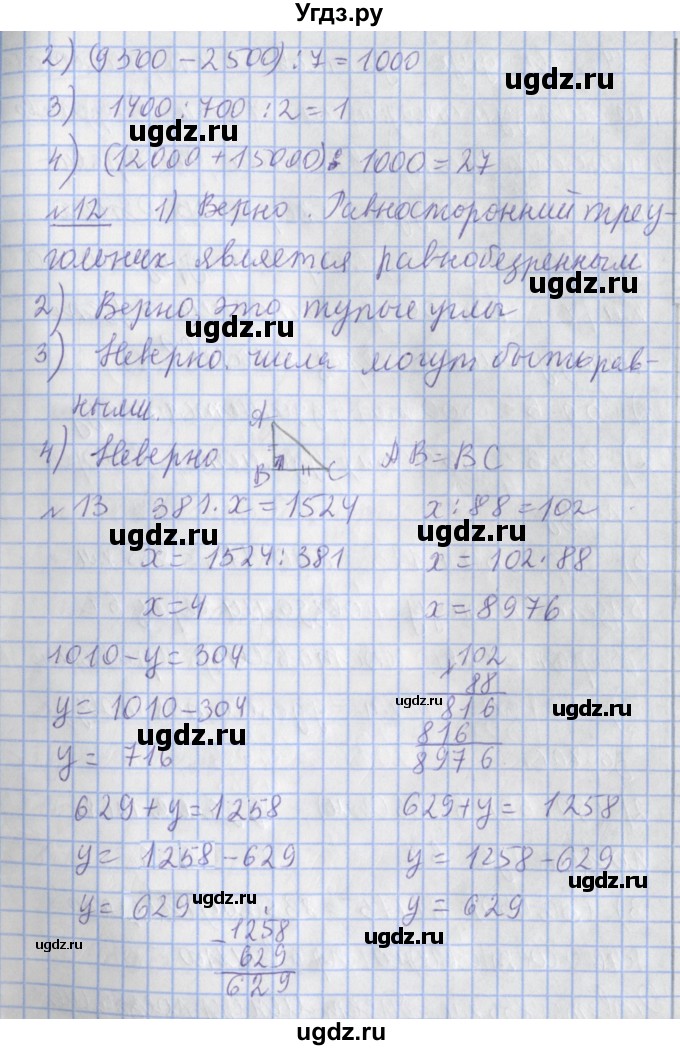 Угдз.ру
2) (9500 - 2500) : 7 = 1000
ugdz.ru
3) 1400 : 700 : 2 = 1
ugdz.ru
4) (12000 + 15000) : 1000 = 27
ugdz.ru
№12 1) Верно. Равносторонний треу-
гольник является равнобедренным
ugdz.ru
2) Верно, это тупые углы
ugdz.ru
3) Неверно. числа могут быть рав-
ными.
ugdz.ru
4) Неверно A B C AB = BC
№13 381 · x = 1524 x : 88 = 102
ugdz.ru ugdz.ru
x = 1524 : 381 x = 102 · 88
x = 4 x = 8976
1010 - y = 304 102
88
y = 1010 - 304 816
ugdz.ru ugdz.ru
ugdz.ru
816
y = 716 8976
629 + y = 1258 629 + y = 1258
y = 1258 - 629 y = 1258 - 629
ugdz.ru
y = 629 y = 629
ugdz.ru
1258
ugdz.ru ugdz.ru
629
629
ugdz.ru